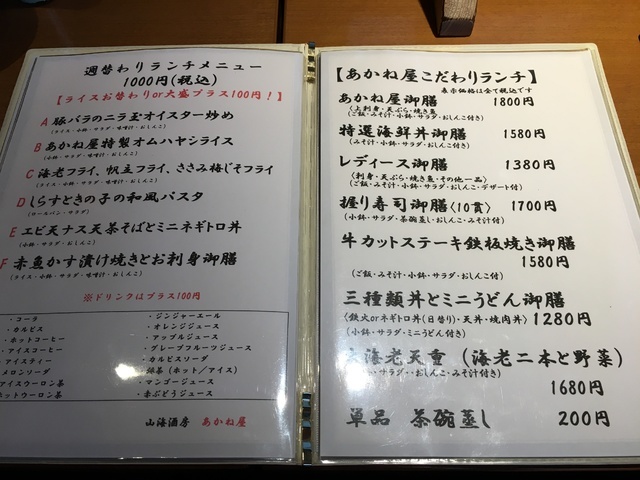 週替わりランチメニュー
1000円(税込)
【ライスお替わりor大盛プラス100円！】
A 豚バラのニラ玉オイスター炒め
(ライス・小鉢・サラダ・味噌汁・おしんこ)
B あかね屋特製オムハヤシライス
(小鉢・サラダ・味噌汁・おしんこ)
C 海老フライ、帆立フライ、ささみ梅じそフライ
(ライス・小鉢・サラダ・味噌汁・おしんこ)
D しらすときの子の和風パスタ
E エビ天ナス天茶そばとミニネギトロ丼
(小鉢・サラダ・おしんこ)
F 赤魚かす漬け焼きとお刺身御膳
(ライス・小鉢・サラダ・味噌汁・おしんこ)
※ドリンクはプラス100円
・コーラ ・ジンジャーエール
・カルピス ・オレンジジュース
・ホットコーヒー ・アップルジュース
・アイスコーヒー ・グレープフルーツジュース
・アイスティー ・カルピスソーダ
メロンソーダ ・緑茶（ホット／アイス）
アイスウーロン茶 ・マンゴージュース
ホットウーロン茶 ・赤ぶどうジュース
山海酒房 あかね屋
【あかね屋こだわりランチ】
表示価格は全て税込です
あかね屋御膳 1800円
(上刺身・天ぷら・焼き魚
ご飯・みそ汁・小鉢・サラダ・おしんこ付き)
特選海鮮丼御膳 1580円
(みそ汁・小鉢・サラダ・おしんこ付き)
レディース御膳 1380円
〈刺身・天ぷら・焼き魚・その他一品〉
(ご飯・みそ汁・小鉢・サラダ・おしんこ・デザート付)
握り寿司御膳〈10貫〉 1700円
(小鉢・サラダ・茶碗蒸し・おしんこ・みそ汁付)
牛カットステーキ鉄板焼き御膳
1580円
(ご飯・みそ汁・小鉢・サラダ・おしんこ付)
三種類丼とミニうどん御膳
〈鉄火orネギトロ丼(日替り)・天丼・焼肉丼〉 1280円
(小鉢・サラダ・ミニうどん付き)
海老天重 （海老二本と野菜）
おしんこ・みそ汁付き)
1680円
単品 茶碗蒸し 200円